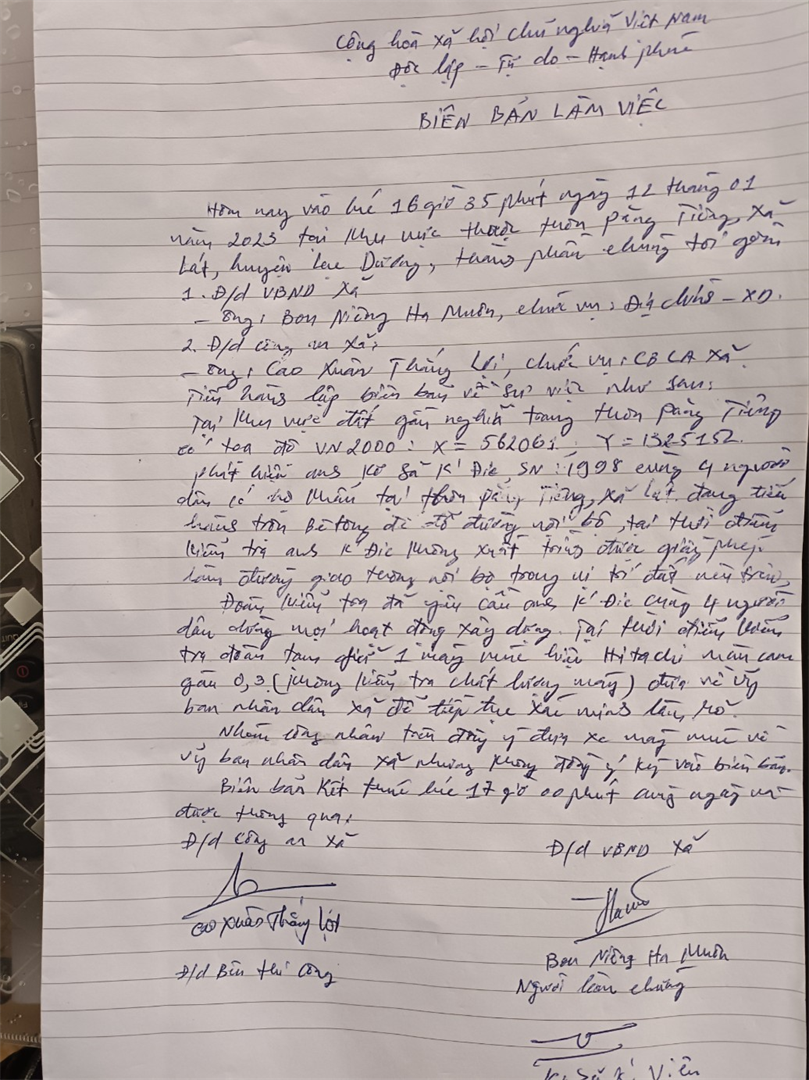 Cộng hòa xã hội chủ nghĩa Việt Nam
Độc lập - Tự do - Hạnh phúc
BIÊN BẢN LÀM VIỆC
Hôm nay vào lúc 16 giờ 35 phút ngày 12 tháng 01
năm 2023 tại khu vực thuộc thôn Păng Tiêng, xã
Lát, huyện Lạc Dương, thành phần chúng tôi gồm
1. Đ/d VBND xã
- Ông: Bon Niêng Ha Muôn, chức vụ: Địa chính - XD.
2. Đ/d công an xã:
- Ông: Cao Xuân Thắng Lợi, chức vụ: CB CA xã.
Tiến hành lập biên bản về sự việc như sau:
Tại khu vực đất gần nghĩa trang thôn Păng Tiêng
có tọa độ VN2000: X = 562061 Y = 1325152.
phát hiện anh Kơ Să K' Đic SN: 1998 cùng 4 người
dân có hộ khẩu tại thôn Păng Tiêng, xã Lát đang tiến
hành trộn bê tông để đổ đường nội bộ, tại thời điểm
kiểm tra anh K' Đic không xuất trình được giấy phép
làm đường giao thông nội bộ trong vị trí đất nêu trên,
Đoàn kiểm tra đã yêu cầu anh K' Đic cùng 4 người
dân dừng mọi hoạt động xây dựng. Tại thời điểm kiểm
tra đoàn tạm giữ 1 máy múc hiệu Hitachi màu cam
gàu 0,3 (không kiểm tra chất lượng máy) đưa về Ủy
ban nhân dân xã để tiếp tục xác minh làm rõ.
Nhóm công nhân trên đồng ý đưa xe máy múc về
Ủy ban nhân dân xã nhưng không đồng ý ký vào biên bản.
Biên bản kết thúc lúc 17 giờ 00 phút cùng ngày và
được thông qua:
Đ/d công an xã Đ/d VBND xã
Cao Xuân Thắng Lợi
Bon Niêng Ha Muôn
Đ/d Bên thi công Người làm chứng
Viên